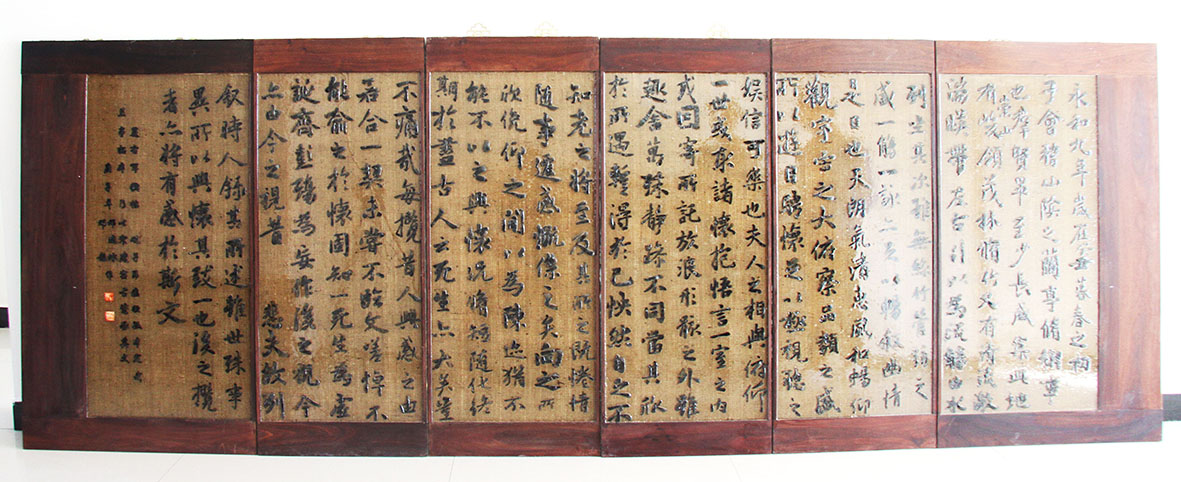 永和九年歲在癸丑暮春之初
于會稽山陰之蘭亭脩禊事
也群賢畢至少長咸集此地
有崇山峻領茂林脩竹又有清流激
湍暎帶左右引以為流觴曲水
列坐其次雖無絲竹管弦之
盛一觴一詠亦足以暢敘幽情
是日也天朗氣清惠風和暢仰
觀宇宙之大俯察品類之盛
所以遊目騁懷足以極視聽之
娛信可樂也夫人之相與俯仰
一世或取諸懷抱悟言一室之內
或因寄所託放浪形骸之外雖
趣舍萬殊靜躁不同當其欣
於所遇暫得於己怏然自足不
知老之將至及其所之既惓情
隨事遷感慨係之矣向之所
欣俛仰之閒以為陳迹猶不
能不以之興懷況脩短隨化終
期於盡古人云死生亦大矣豈
不痛哉每攬昔人興感之由
若合一契未嘗不臨文嗟悼不
能喻之於懷固知一死生為虛
誕齊彭殤為妄作後之視今
亦由今之視昔 悲夫故列
敘時人錄其所述雖世殊事
異所以興懷其致一也後之攬
者亦將有感於斯文